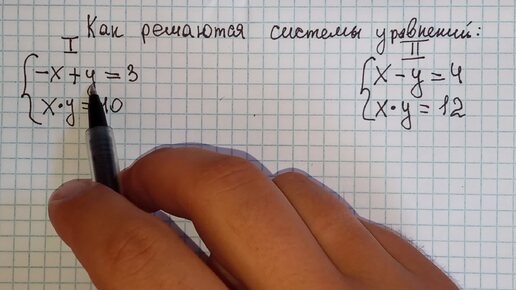 Как решаются системы уравнений:
I
-x + y = 3
x · y = 10
II
x - y = 4
x · y = 12